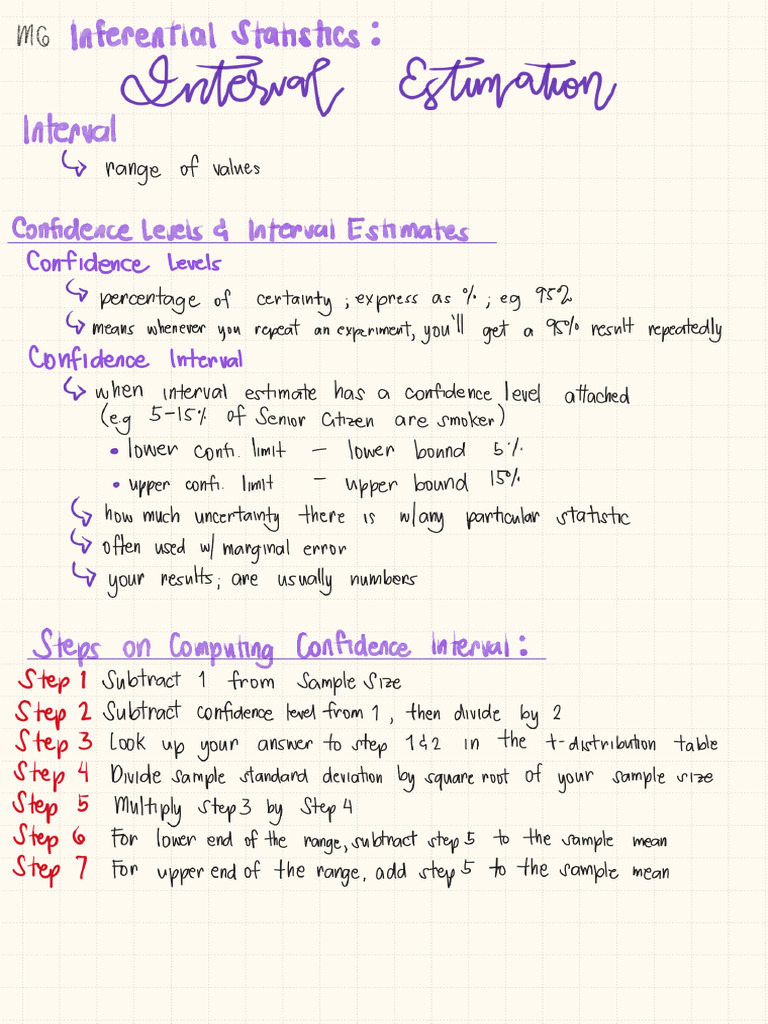 M6 Inferential Statistics:
Interval Estimation
Interval
range of values
Confidence Levels & Interval Estimates
Confidence Levels
percentage of certainty ; express as % ; eg 95%
means whenever you repeat an experiment, you'll get a 95% result repeatedly
Confidence Interval
when interval estimate has a confidence level attached
(e.g 5-15% of Senior Citizen are smoker)
• lower confi. limit – lower bound 5%
• upper confi. limit – upper bound 15%
how much uncertainty there is w/any particular statistic
often used w/ marginal error
your results; are usually numbers
Steps on Computing Confidence Interval:
Step 1 Subtract 1 from Sample Size
Step 2 Subtract confidence level from 1, then divide by 2
Step 3 Look up your answer to step 1&2 in the t-distribution table
Step 4 Divide sample standard deviation by square root of your sample size
Step 5 Multiply Step 3 by Step 4
Step 6 For lower end of the range, subtract step 5 to the sample mean
Step 7 For upper end of the range, add step 5 to the sample mean